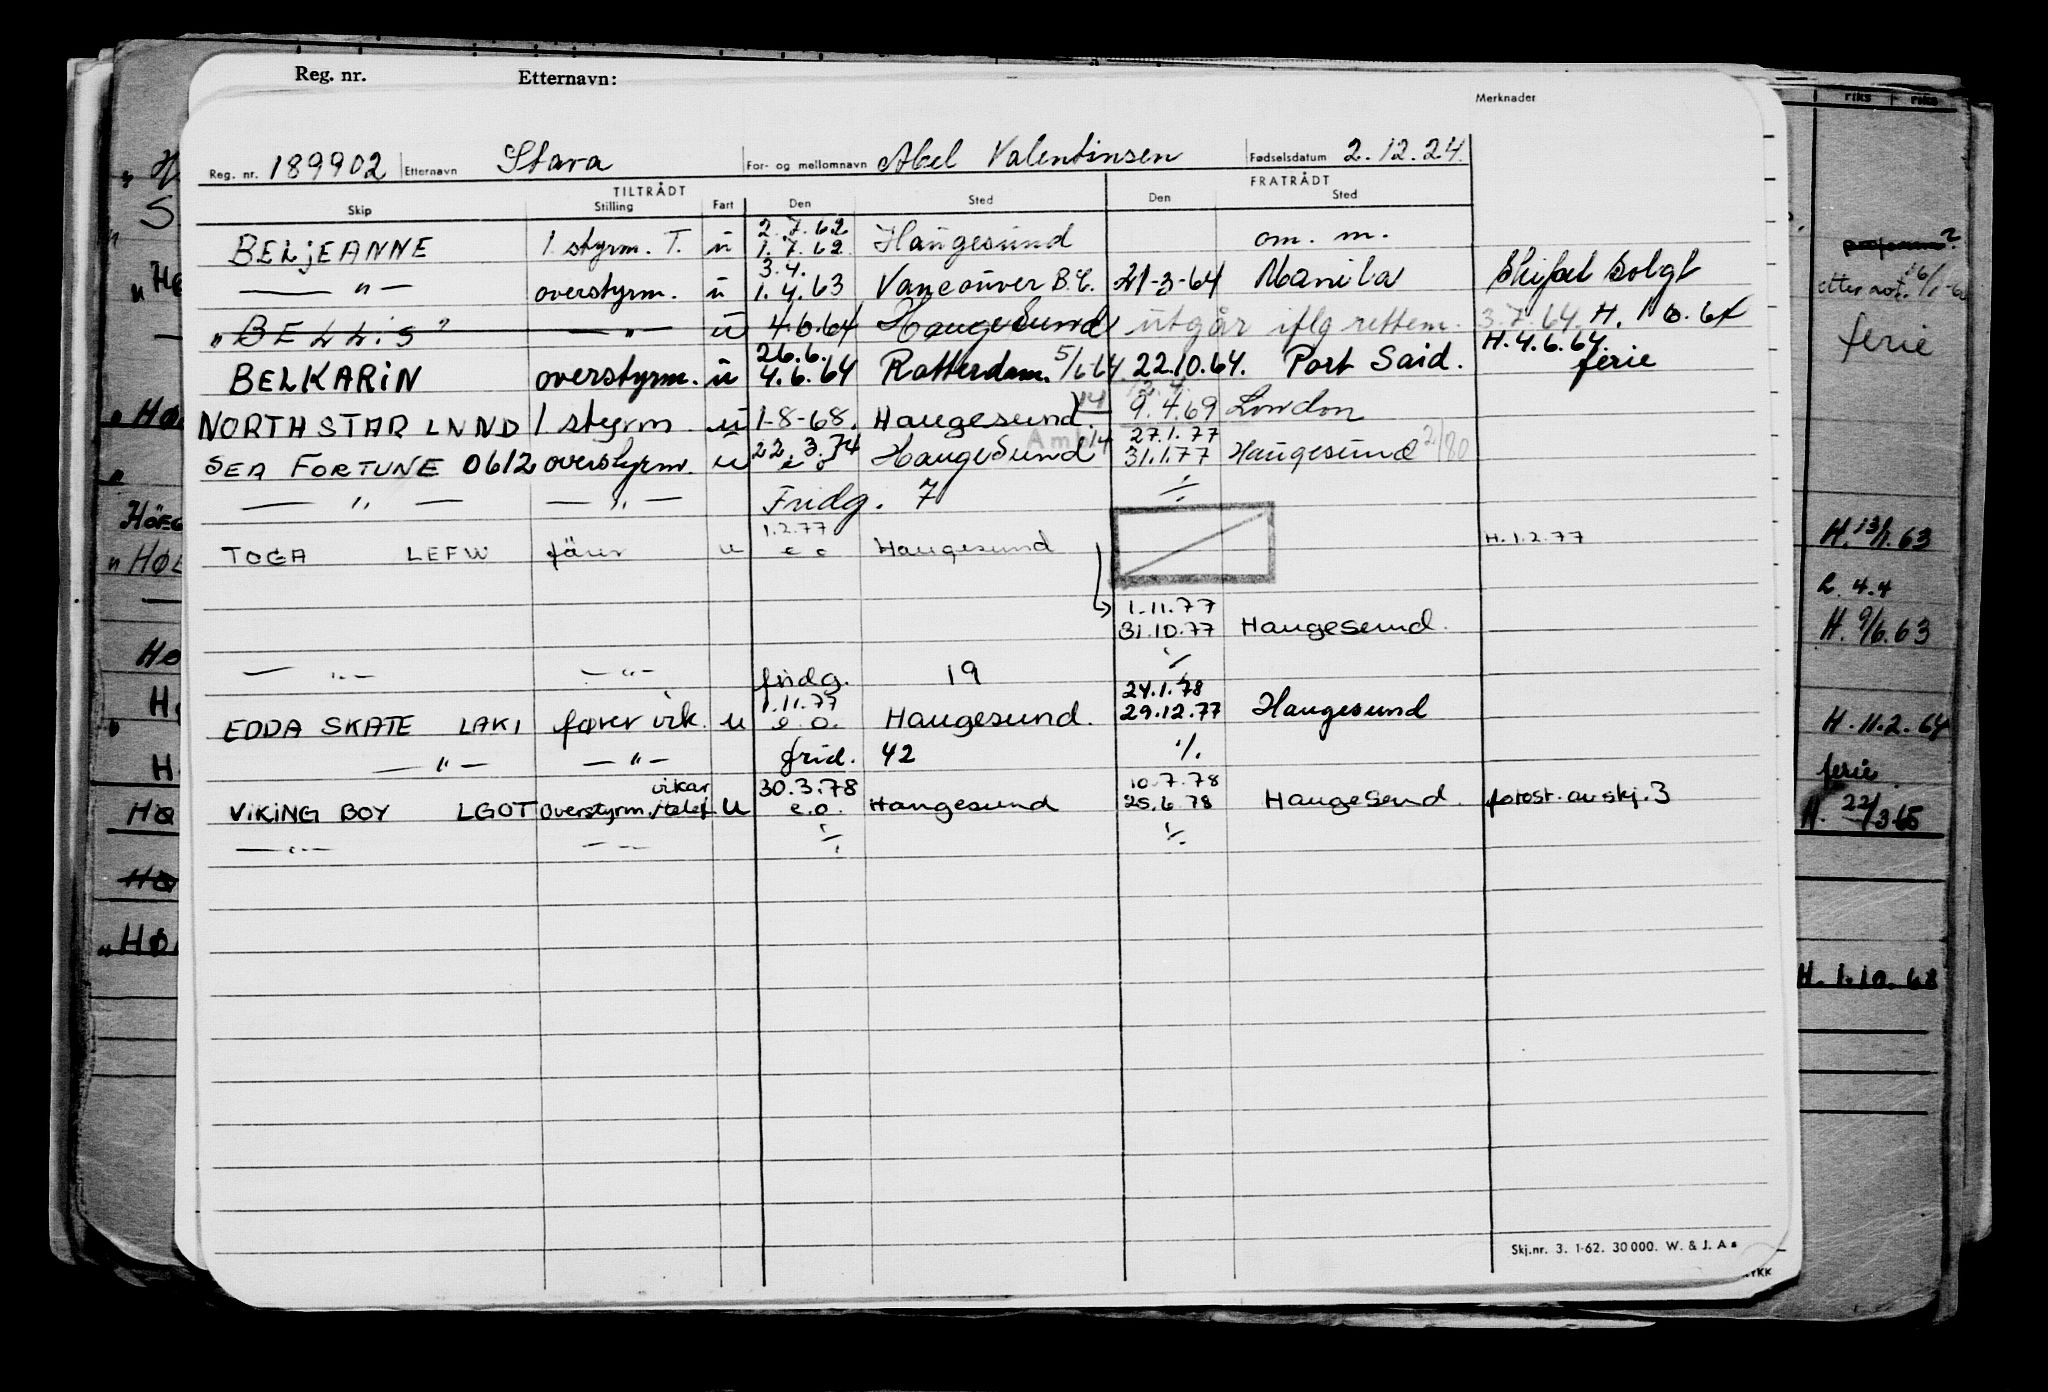 Reg. nr. Etternavn:
Merknader
Reg. nr. 189902 Etternavn Stava For- og mellomnavn Abel Valentinsen Fødselsdatum 2.12.24.
TILTRÅDT FRATRÅDT
Skip Stilling Fart Den Sted Den Sted
2.7.62
BELjEANNE 1 styrm. T. u 1.7.62. Haugesund om. m.
3.4.
— " — overstyrm. u 1.4.63 Vancouver B.C. 21-3-64 Manila Skipet solgt
" BELLiS " — " — u 4.6.64 Haugesund utgår iflg rettem. 3.7.64. H. 1 6.64
26.6. H.4.6.64.
BELKARiN overstyrm. u 4.6.64 Rotterdam. 5/6 64. 22.10.64. Port Said. ferie
12.4.
NORTH STAR LNND 1 styrm. u 1-8-68. Haugesund. 14 9.4.69 London
22.3.74 27.1.77
SEA FORTUNE 0612 overstyrm. u e o Haugesund 14 31.1.77 Haugesund 2/80
— " — — " — Fridg. 7 %
1.2.77
TOGA LEFW fører u e o Haugesund H.1.2.77
1.11.77
31.10.77 Haugesund.
— " — — " — fridg. 19 %
1.11.77 24.1.78
EDDA SKATE LAKI fører vik. u e.o. Haugesund. 29.12.77 Haugesund
— " — — " — frid. 42 %
vikar 30.3.78 10.7.78
ViKiNG BOY LGOT overstyrm. u e.o. Haugesund 25.6.78 Haugesund. forost. av skj. 3
— " — — " — % %
Skj.nr. 3. 1-62. 30 000. W. & J. A s
riks riks
ferie
H. 13/1.63
L. 4.4
H. 9/6.63
H. 11.2.64
ferie
H. 22/3 65
H. 1.10.68